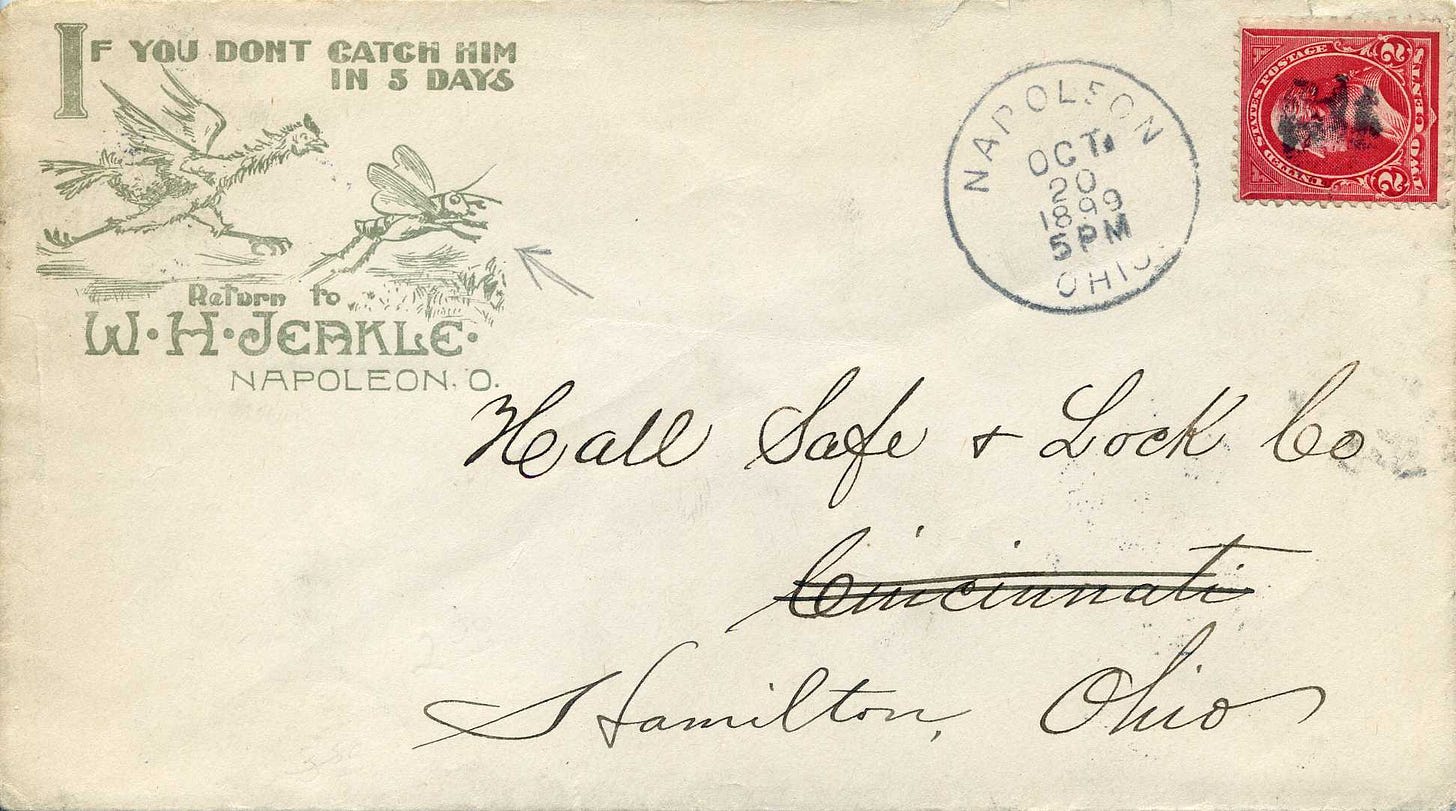 IF YOU DONT CATCH HIM
IN 5 DAYS
Return to
W·H·JEAKLE·
NAPOLEON. O.
NAPOLEON
OCT.
20
1899
5 PM
OHIO
UNITED STATES POSTAGE
2 TWO CENTS 2
Hall Safe & Lock Co
Cincinnati
Hamilton, Ohio